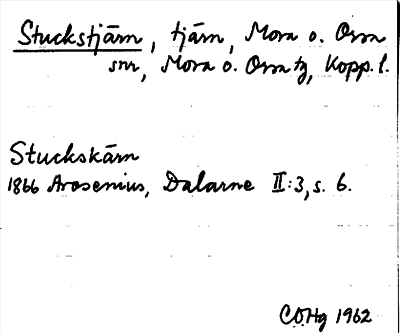 Stuckstjärn, tjärn, Mora o. Orsa
snr, Mora o. Orsa tg, Kopp. l.
Stuckskärn
1866 Arosenius, Dalarne II:3, s. 6.
COHg 1962